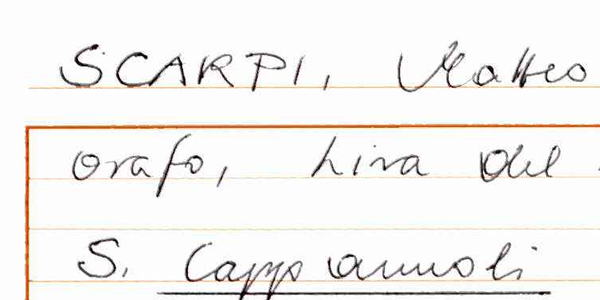 SCARPI, Matteo
orafo, Lira del
S. Cappannoli